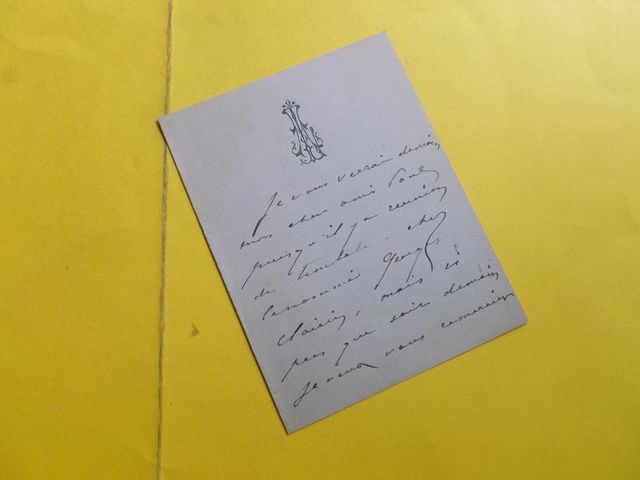 Je vous verrai demain
mon cher ami Paul
puisqu'il y a reunion
de chez
Georges
Clairin, mais si
peu que soit demain
Je veux vous remercier